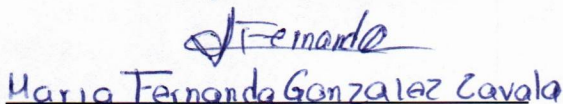 Fernanda
Maria Fernanda Gonzalez Zavala